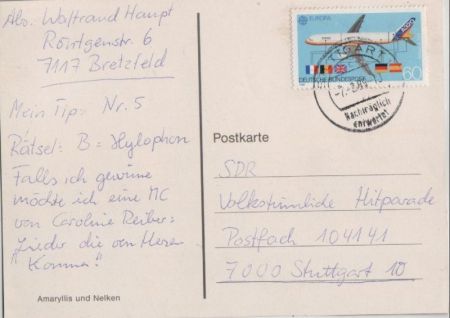 Abs. Waltraud Haupt
Röntgenstr. 6
7117 Bretzfeld
Mein Tip: Nr. 5
Rätsel: B = Xylophon
Falls ich gewinne
möchte ich eine MC
von Caroline Reiber:
"Lieder die von Herzen
Kommen"
Amaryllis und Nelken
EUROPA
DEUTSCHE BUNDESPOST
60
Nachträglich
entwertet
Postkarte
SDR
Volkstümliche Hitparade
Postfach 104141
7000 Stuttgart 10